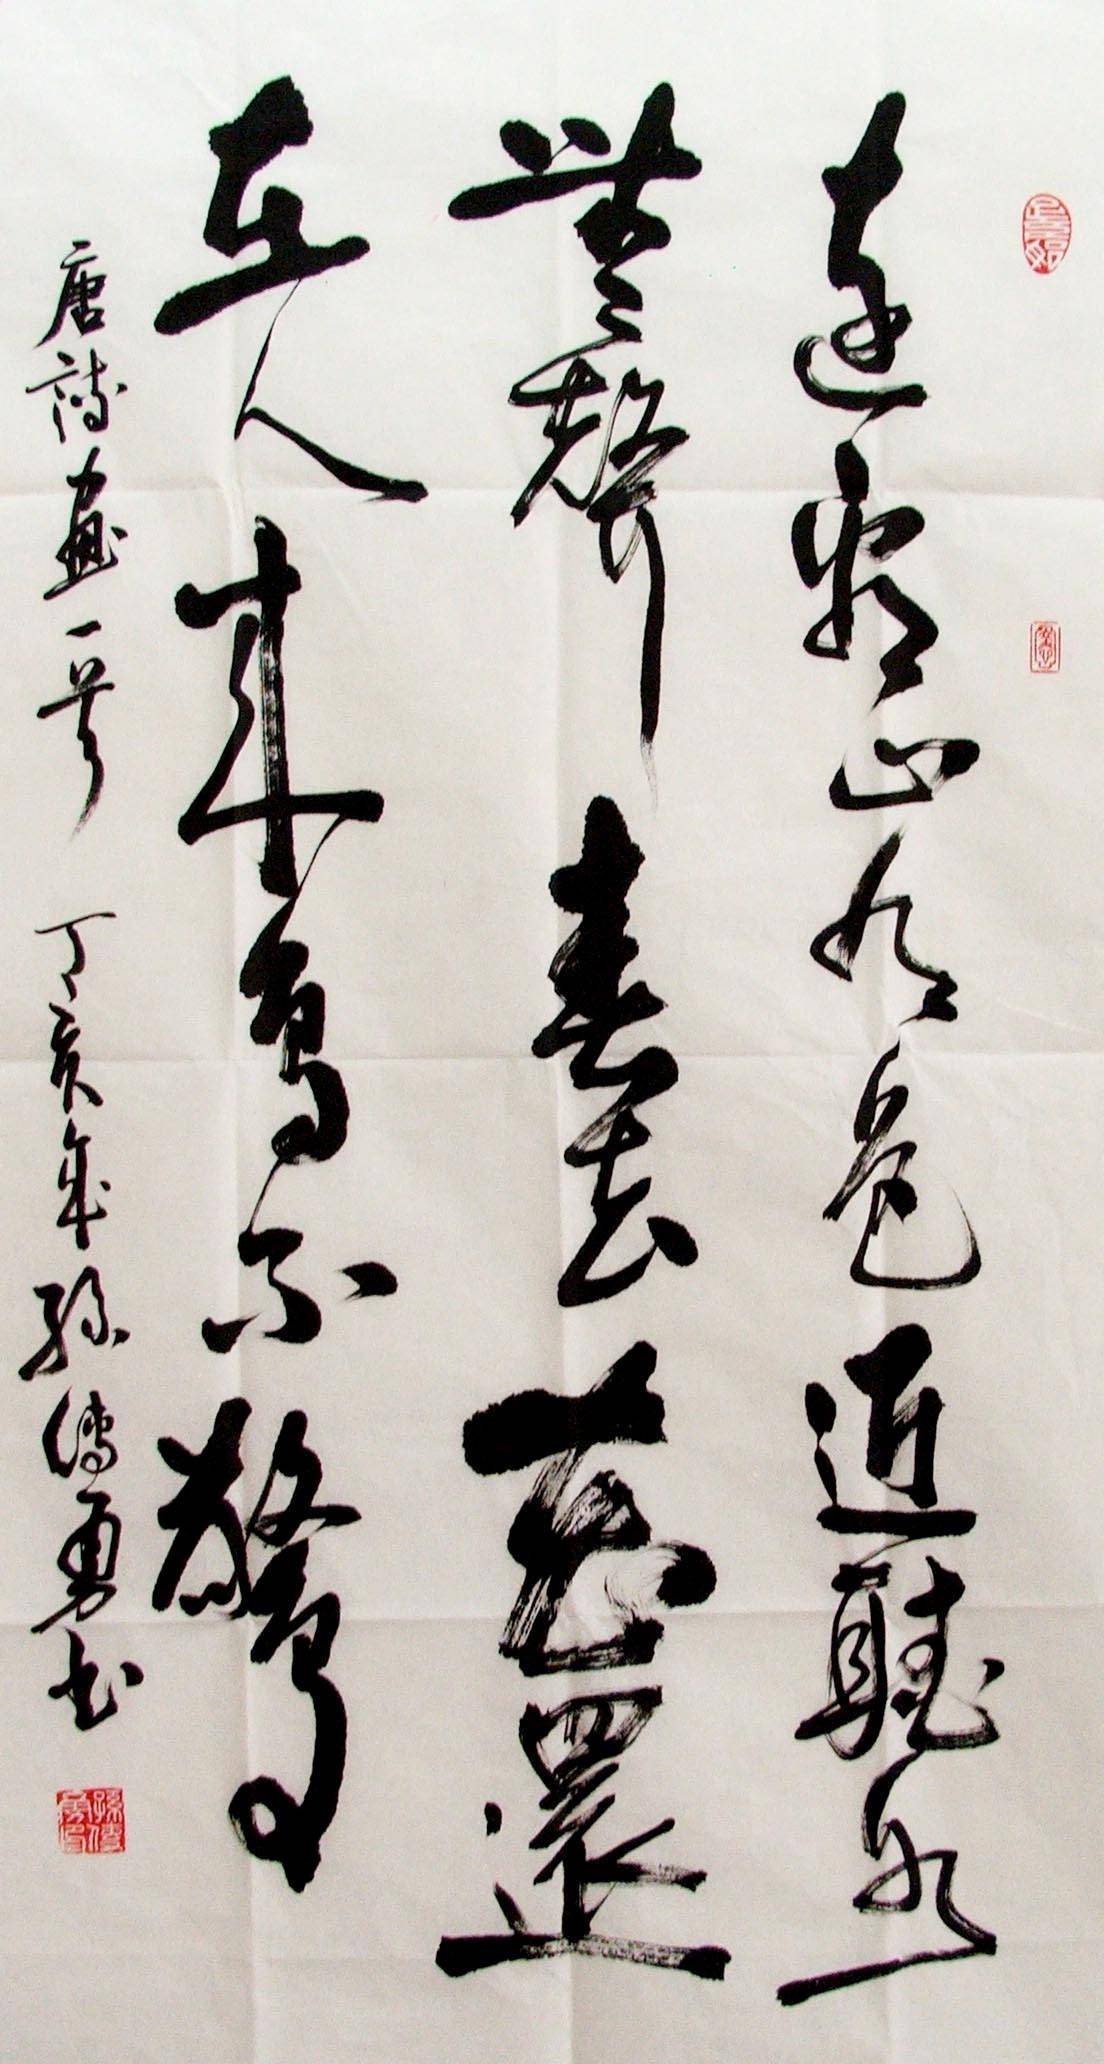 遠看山有色近聽水
無聲春去花還
在人來鳥不驚
唐詩畫一首 丁亥年孫傳勇書